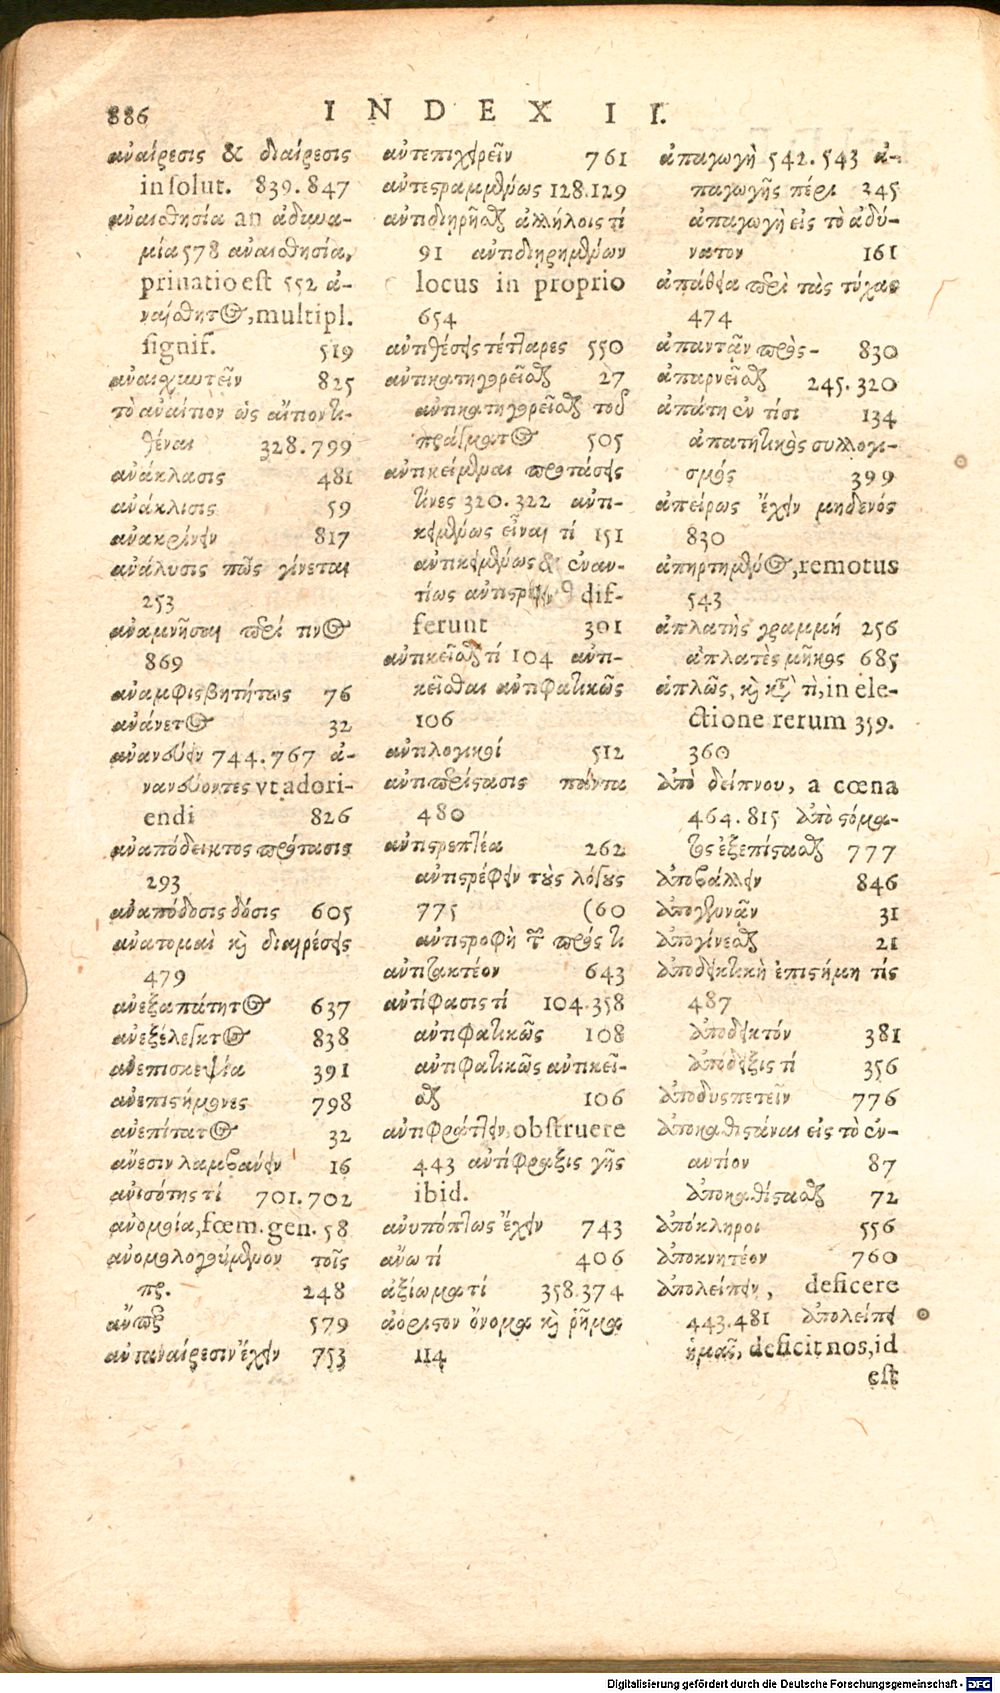 886 INDEX II.
ἀναίρεσις & διαίρεσις
in ſolut. 839.847
ἀναισθησία an ἀδυνα-
μία 578 ἀναισθησία,
priuatio eſt 552 ἀ-
ναίσθητος, multipl.
ſignif. 519
ἀναισχυντεῖν 825
τὸ ἀναίτιον ὡς αἴτιον τι-
θέναι 328.799
ἀνάκλασις 481
ἀνάκλισις 59
ἀνακρίνειν 817
ἀνάλυσις πῶς γίνεται
253
ἀναμνῆσαι περί τινος
869
ἀναμφισβητήτως 76
ἀνάνετος 32
ἀνανεύειν 744.767 ἀ-
νανεύοντες vt adori-
endi 826
ἀναπόδεικτος πρότασις
293
ἀναπόδοσις δόσις 605
ἀνατομαὶ καὶ διαιρέσεις
479
ἀνεξαπάτητος 637
ἀνεξέλεγκτος 838
ἀνεπισκεψία 391
ἀνεπιστήμονες 798
ἀνεπίτατος 32
ἄνεσιν λαμβάνειν 16
ἀνισότης τί 701.702
ἀνομοία, fœm. gen. 58
ἀνομολογούμενον τοῖς
πρ. 248
579
ἀνταναίρεσιν ἔχειν 753
ἀντεπιχειρεῖν 761
ἀντεστραμμένως 128.129
ἀντιδιῃρῆσθαι ἀλλήλοις τί
91 ἀντιδιῃρημένων
locus in proprio
654
ἀντιθέσεις τέτταρες 550
ἀντικατηγορεῖσθαι 27
ἀντικατηγορεῖσθαι τοῦ
πράγματος 505
ἀντικείμεναι προτάσεις
τίνες 320.322 ἀντι-
κειμένως εἶναι τί 151
ἀντικειμένως & ἐναν-
τίως ἀντιστρέφειν dif-
ferunt 301
ἀντικεῖσθαι τί 104 ἀντι-
κεῖσθαι ἀντιφατικῶς
106
ἀντιλογικοί 512
ἀντιπερίστασις πάντα
480
ἀντιστρεπτέα 262
ἀντιστρέφειν τοὺς λόγους
775 (60
ἀντιστροφὴ τῶν πρός τι
ἀντιτακτέον 643
ἀντίφασις τί 104.358
ἀντιφατικῶς 108
ἀντιφατικῶς ἀντικεῖ-
σθαι 106
ἀντιφράττειν, obſtruere
443 ἀντίφραξις γῆς
ibid.
ἀνυπόπτως ἔχειν 743
ἄνω τί 406
ἀξίωμα τί 358.374
ἀόριστον ὄνομα καὶ ῥῆμα
114
ἀπαγωγὴ 542.543 ἀ-
παγωγῆς πέρι 345
ἀπαγωγὴ εἰς τὸ ἀδύ-
νατον 161
ἀπάθεια περὶ τὰς τύχας
474
ἀπαντᾶν πρὸς- 830
ἀπαρνεῖσθαι 245.320
ἀπάτη ἐν τίσι 134
ἀπατητικὸς συλλογι-
σμός 399
ἀπείρως ἔχειν μηδενός
830
ἀπηρτημένος, remotus
543
ἀπλατὴς γραμμή 256
ἀπλατὲς μῆκος 685
ἁπλῶς, καὶ κατὰ τὶ, in ele-
ctione rerum 359.
360
ἀπὸ δείπνου, a cœna
464.815 ἀπὸ στόμα-
τος ἐξεπίστασθαι 777
ἀποβάλλειν 846
ἀπογυμνᾶν 31
ἀπογίνεσθαι 21
ἀποδεικτικὴ ἐπιστήμη τίς
487
ἀποδεικτόν 381
ἀπόδειξις τί 356
ἀποδυσπετεῖν 776
ἀποκαθιστάναι εἰς τὸ ἐν-
αντίον 87
ἀποκαθίστασθαι 72
ἀπόκληροι 556
ἀποκνητέον 760
ἀπολείπειν, deficere
443.481 ἀπολείπει
ἡμᾶς, deficit nos, id
eſt
Digitalisierung gefördert durch die Deutsche Forschungsgemeinschaft - DFG